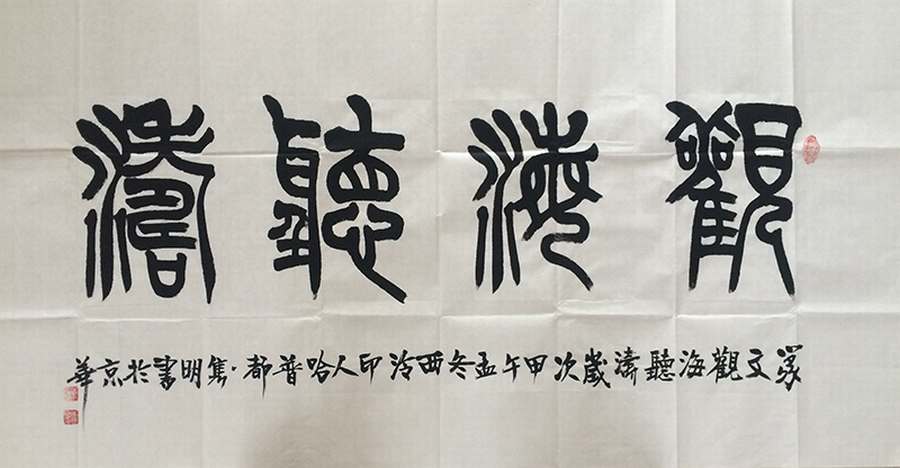 觀海聽濤
篆文觀海聽濤歲次甲午孟冬西泠印人哈普都·隽明書於京華